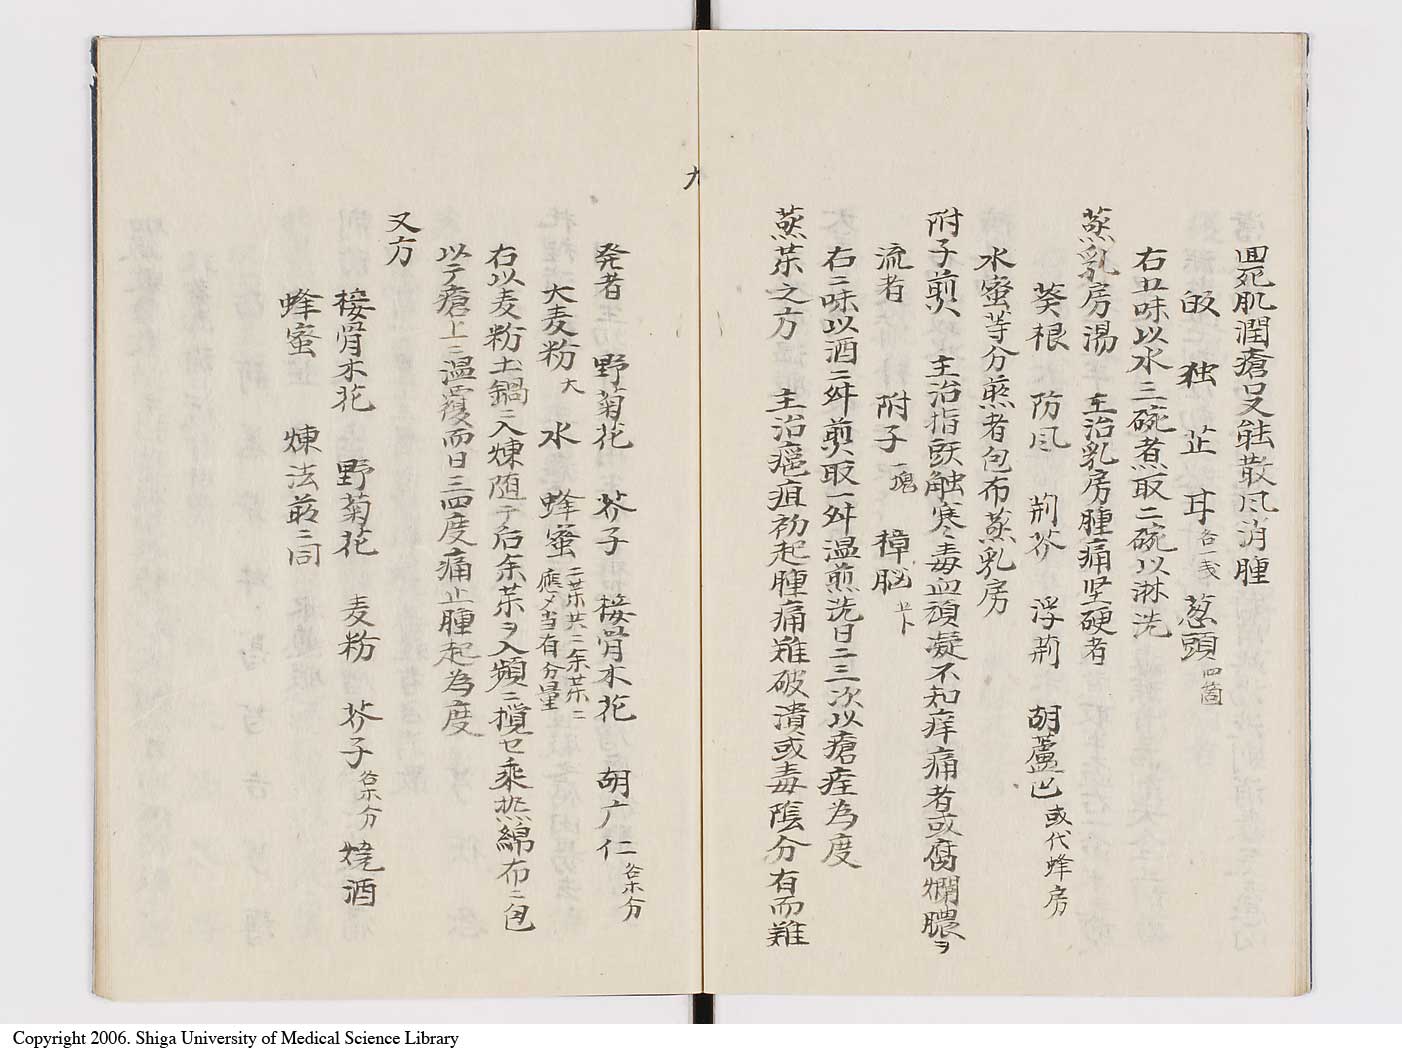 罨死肌潤瘡口又能散风消腫
皈 独 芷 耳各一戋 葱頭四箇
右五味以水三碗煮取二碗以淋洗
蒸乳房湯 主治乳房腫痛坚硬者
葵根 防风 荊芥 浮荊 胡蘆巴或代蜂房
水蜜等分煎者包布蒸乳房
附子煎 主治指頭触寒毒血頑凝不知痒痛者或腐爛膿ヲ
流者 附子一塊 樟脳
右二味以酒二舛煎取一舛温煎洗日二三次以瘡痊為度
蒸茶之方 主治瘟疽初起腫痛難破潰或毒陰分有而難
九
発者 野菊花 芥子 椄骨木花 胡广仁各ホ分
大麦粉大 水 蜂蜜二茶共ニ余茶ニ應メ当有分量
右以麦粉土鍋ニ入煉随テ后余茶ヲ入頻ニ攪セ乘热綿布ニ包
以テ瘡上ニ温覆而日三四度痛止腫起為度
又方
椄骨木花 野菊花 麦粉 芥子各ホ分 焼酒
蜂蜜 煉法前ニ同
Copyright 2006. Shiga University of Medical Science Library